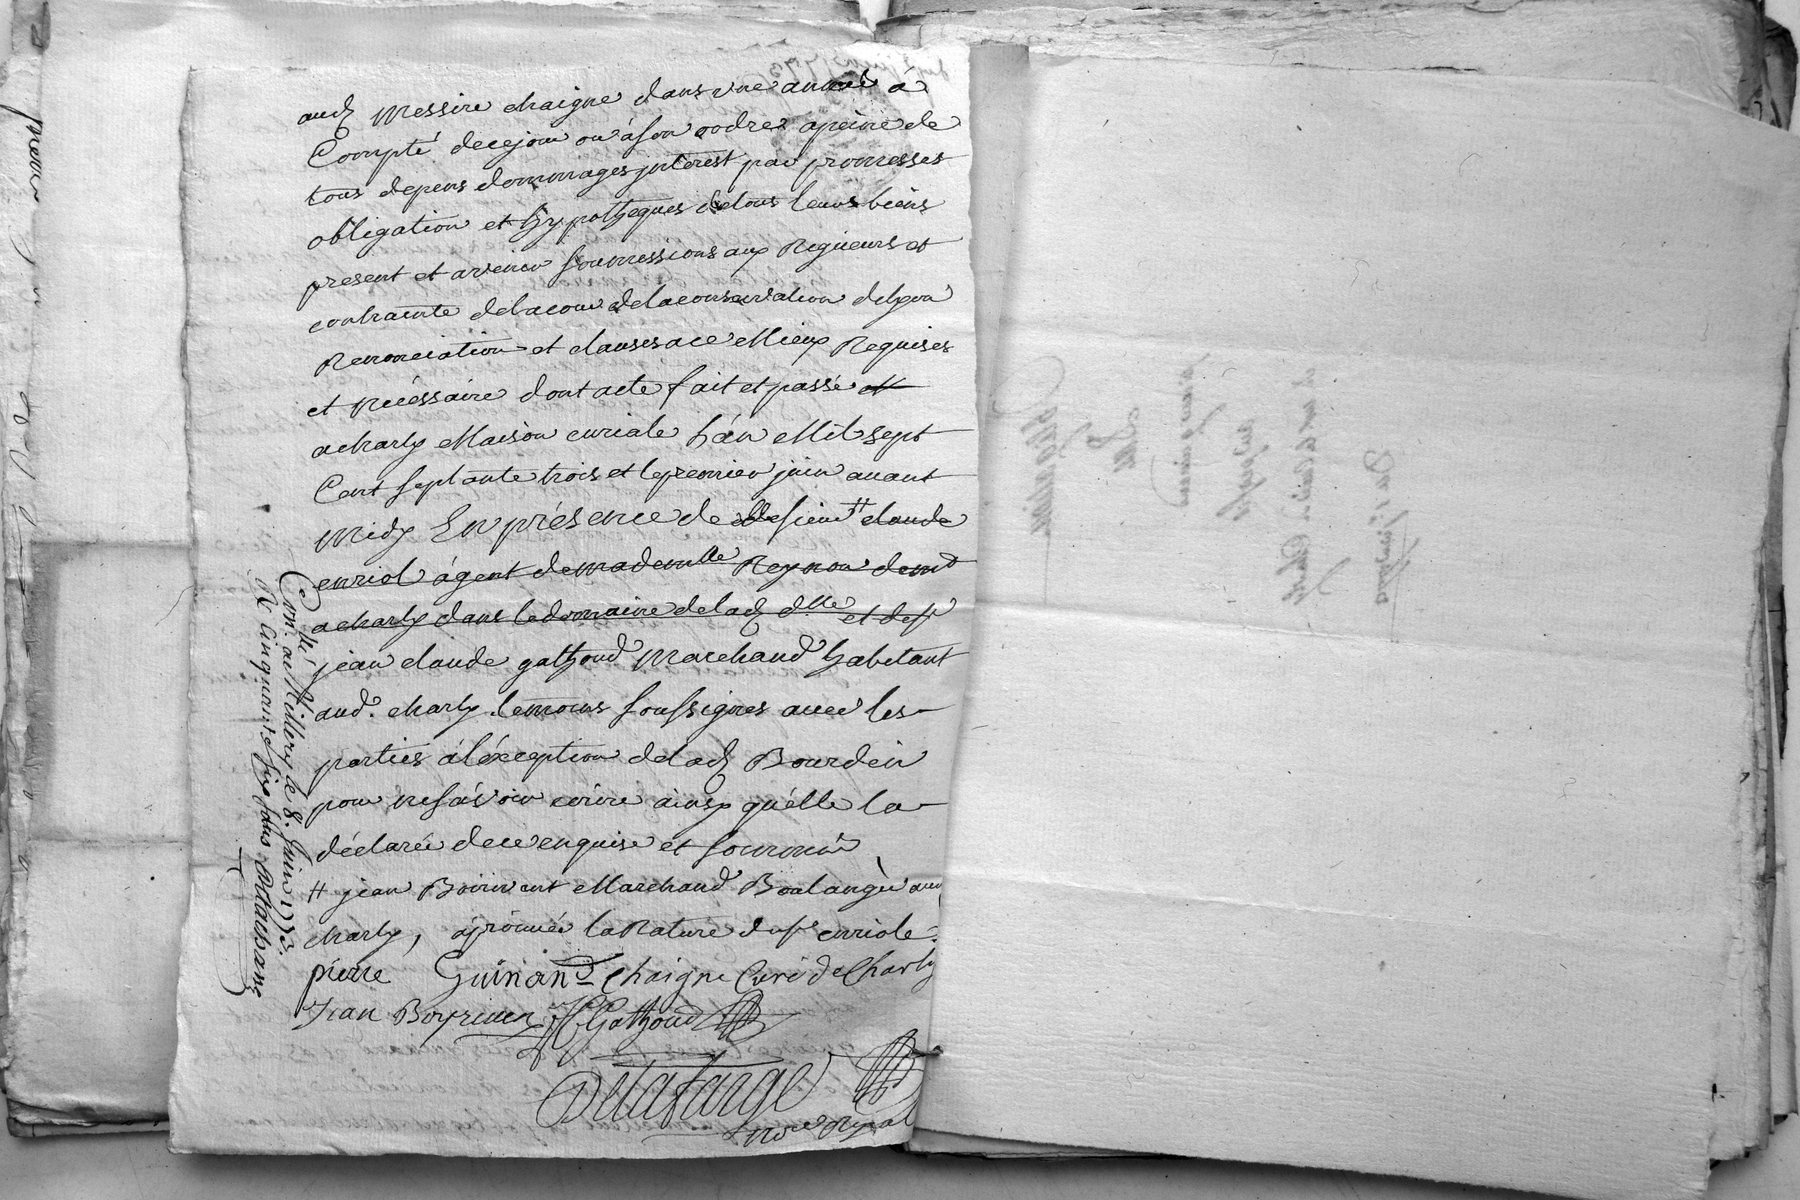 aud. Messire chaigne dans une anneé a
Compté decejour ou à son ordre apeine de
tous depens dommages jnterest par promesses
obligation et hypotheques de tous leurs biens
present et avenir soumissions aux Rigueurs et
contrainte delacour delaconservation delyon
Renonciation et clauses ace Mieux Requises
et nécéssaire dont acte fait et passé et
acharly Maison curiale l'an Mil sept
Cent septante trois et lepremier juin avant
Midy En présence de sieur # claude
enriol ágent demademlle Reynon demt
acharly dans ledomaine delad. dlle et de sr
jean claude gathoud Marchand habitant
aud. charly temoins soussignes avec les
parties à l'éxception delad. Bourdin
pour nesávoir ecrire ainsy qu'élle la
déclarée dece enquise et sommeé
# jean Boirivent Marchand Boulangér aud
charly, aprouvée la Rature du sr enriole
pierre Guinand chaigne Curé de Charly
Jean Boyriven JCGathoud
Delafarge
nore Royal
Conllé, au Millery le 8. Juin 1773.
R. Cinquante six sous